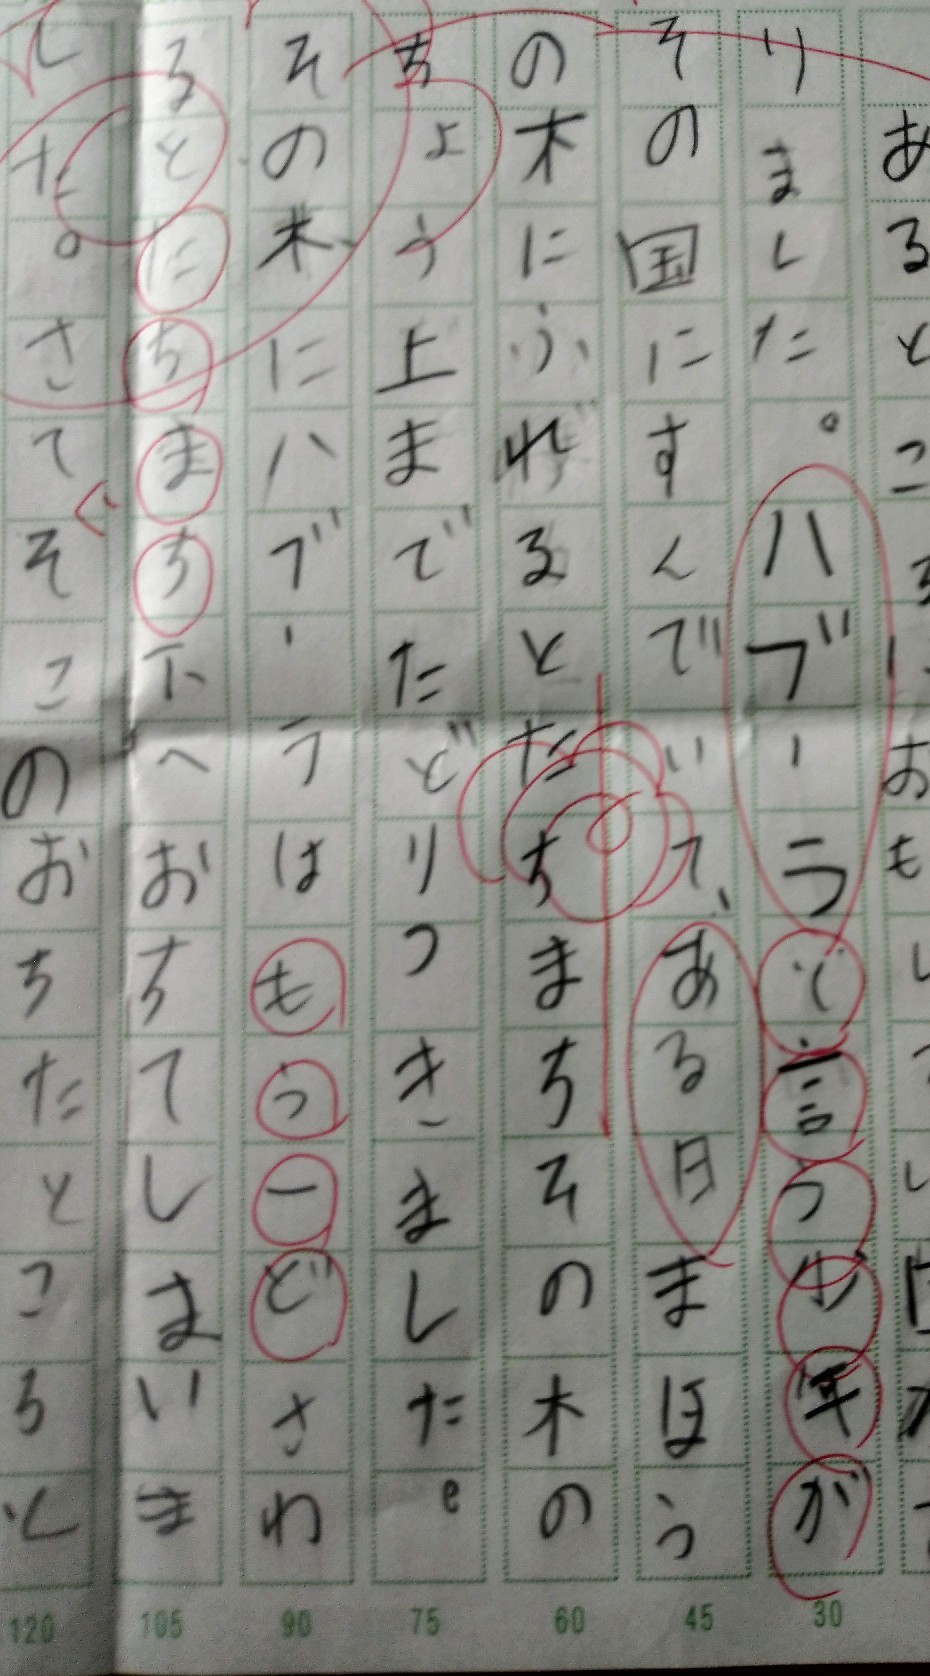 あるところにおもしい国が
りました。ハブーラと言う少年が
その国にすんでいて、ある日まほう
の木にふれるとたちまちその木の
ちょう上までたどりつきました。
その木にハブーラはもう一どさわ
るとにちまち下へおちてしまいま
した。さてそこのおちたところと
30
45
60
75
90
105
120